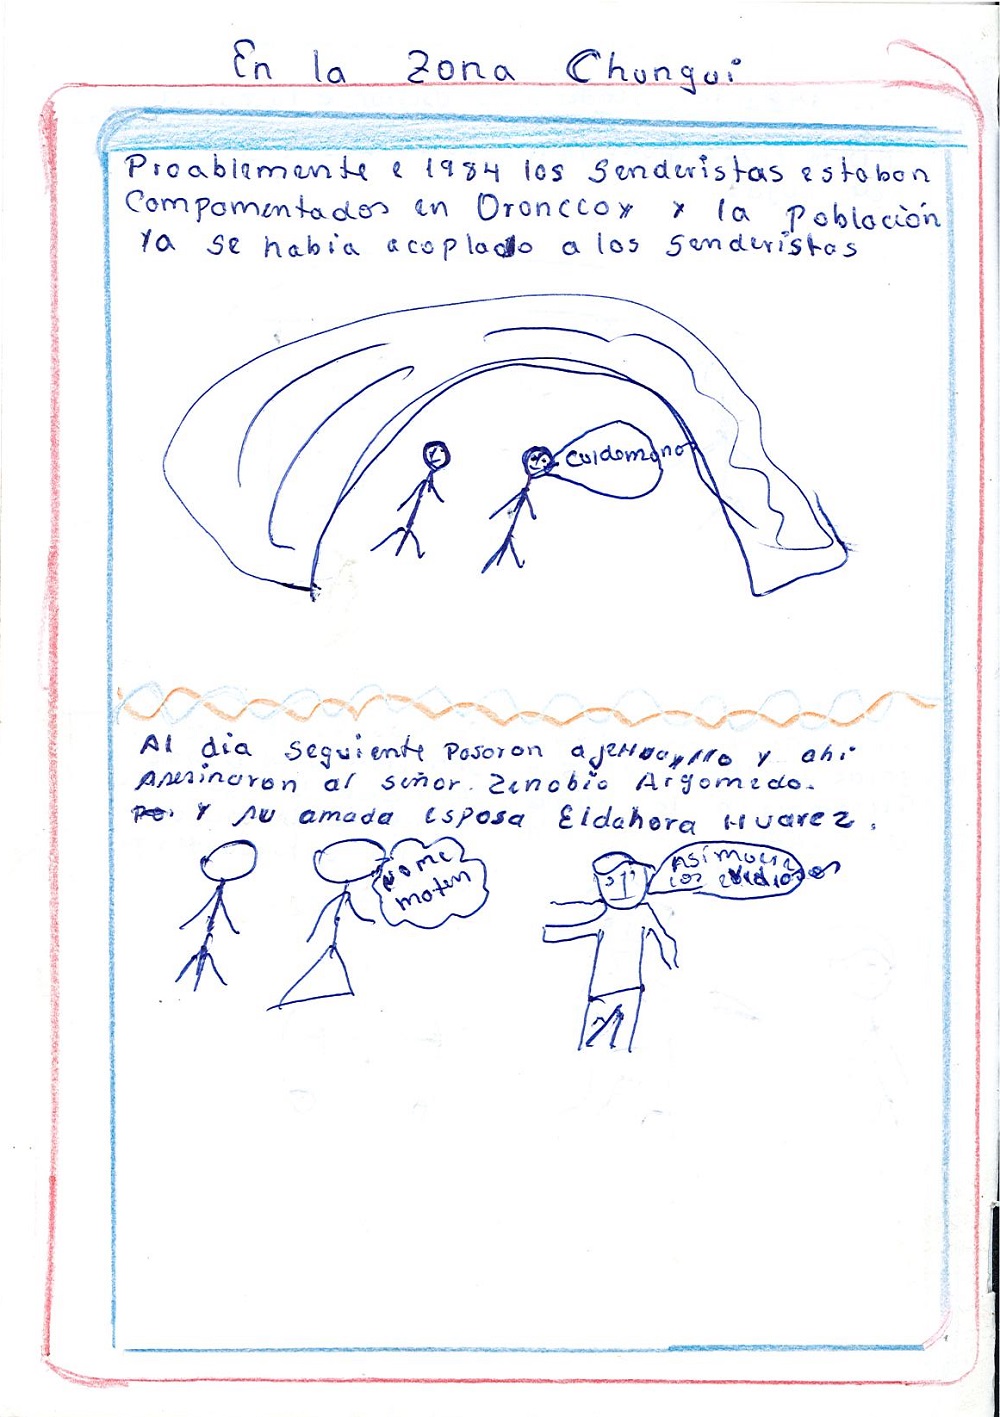 En la zona Chungui
Proablemente e 1984 los Senderistas estaban
Compamentados en Oronccoy y la Población
Ya se había acoplado a los senderistas
Cuidemono
Al dia seguiente Pasaron a y ahi
Asesinaron al señor. Zenobio Argomedo.
Y su amada esposa Eldahora Huarez.
no me
maten
Asi
los